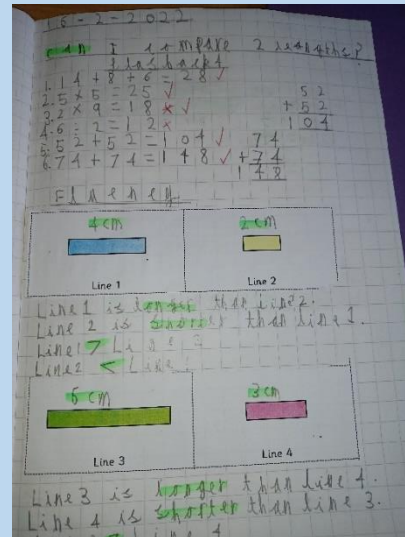 16-2-2022
can I compare 2 lengths?
flashback 4
1. 14 + 8 + 6 = 28 ✓
2. 5 × 5 = 25 ✓
3. 2 × 9 = 18 × ✓
4. 6 ÷ 2 = 12 ×
5. 52 + 52 = 104 ✓
6. 74 + 74 = 148 ✓
52
+ 52
104
74
+ 74
148
4cm
2cm
Line 1
Line 2
Line 1 is longer than line 2.
Line 2 is shorter than line 1.
Line 1 > Line 2
Line 2 < Line
5cm
3cm
Line 3
Line 4
Line 3 is longer than line 4.
Line 4 is shorter than line 3.